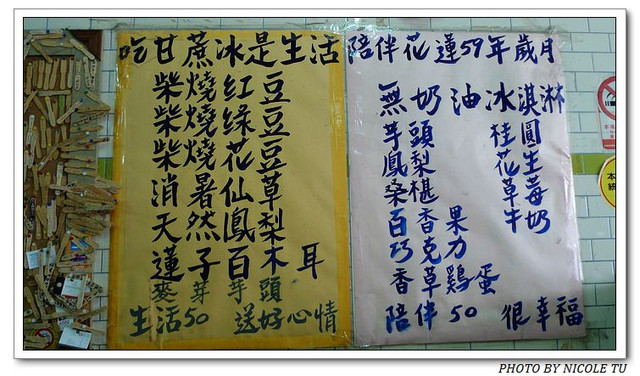 吃甘蔗冰是生活
柴燒紅豆
柴燒綠豆
柴燒花豆
消暑仙草
天然鳳梨
蓮子百木耳
麥芽芋頭
生活50 送好心情
陪伴花蓮59年歲月
無奶油冰淇淋
芋頭 桂圓
鳳梨 花生
桑椹 草莓
百香果 牛奶
巧克力
香草雞蛋
陪伴50 很幸福
PHOTO BY NICOLE TU